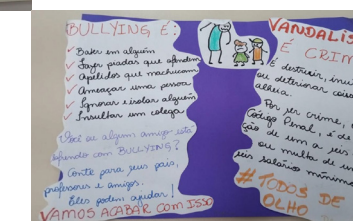 BULLYING É:
✓ Bater em alguém
✓ Fazer piadas que ofendem
✓ Apelidos que machucam
✓ Ameaçar uma pessoa
✓ Ignorar e isolar alguém
✓ Insultar um colega
Você ou algum amigo está
sofrendo com BULLYING?
Conte para seus pais,
professores e amigos.
Eles podem ajudar!
VAMOS ACABAR COM ISSO
VANDALIS
É CRIM
É destruir,
ou deteriorar coisa
alheia.
Por ser crime, o
Código Penal, é de
ção de um a seis
ou multa de um
seis salários mínimo
#TODOS DE
OLHO